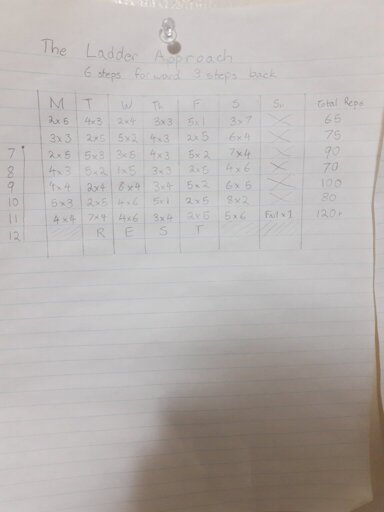 The Ladder Approach
6 steps forward 3 steps back
M T W Th F S Su Total Reps
2x5 4x3 2x4 3x3 5x1 3x7 65
3x3 2x5 5x2 4x3 2x5 6x4 75
7 2x5 5x3 3x5 4x3 5x2 7x4 90
8 4x3 5x2 1x5 3x3 2x5 4x6 70
9 4x4 2x4 8x4 3x4 5x2 6x5 100
10 5x3 2x5 4x6 5x1 2x5 8x2 80
11 4x4 7x4 4x6 3x4 2x5 5x6 x1 120+
12 R E S T